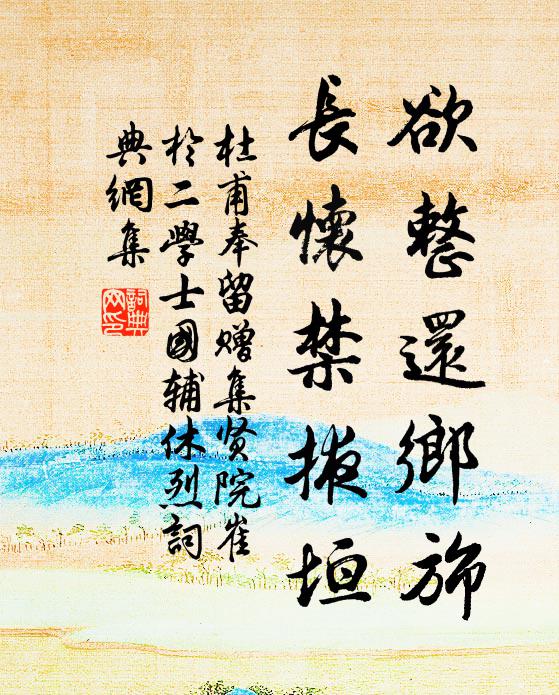 欲整還鄉旆
長懷禁掖垣
杜甫奉留赠集贤院崔
於二學士國辅休烈詞
典網集
詞典網印